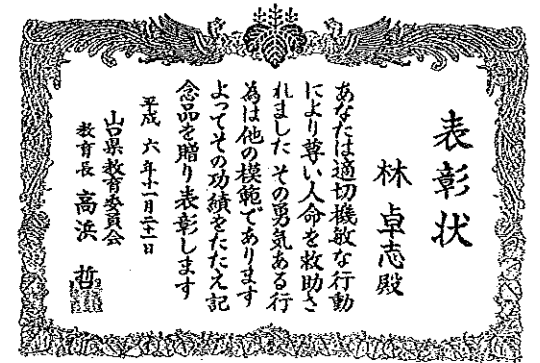 表彰状
林 卓志殿
あなたは適切機敏な行動
により尊い人命を救助さ
れました その勇気ある行
為は他の模範であります
よってその功績をたたえ記
念品を贈り表彰します
平成 六年十一月二十一日
山口県教育委員会
教育長 高浜 哲